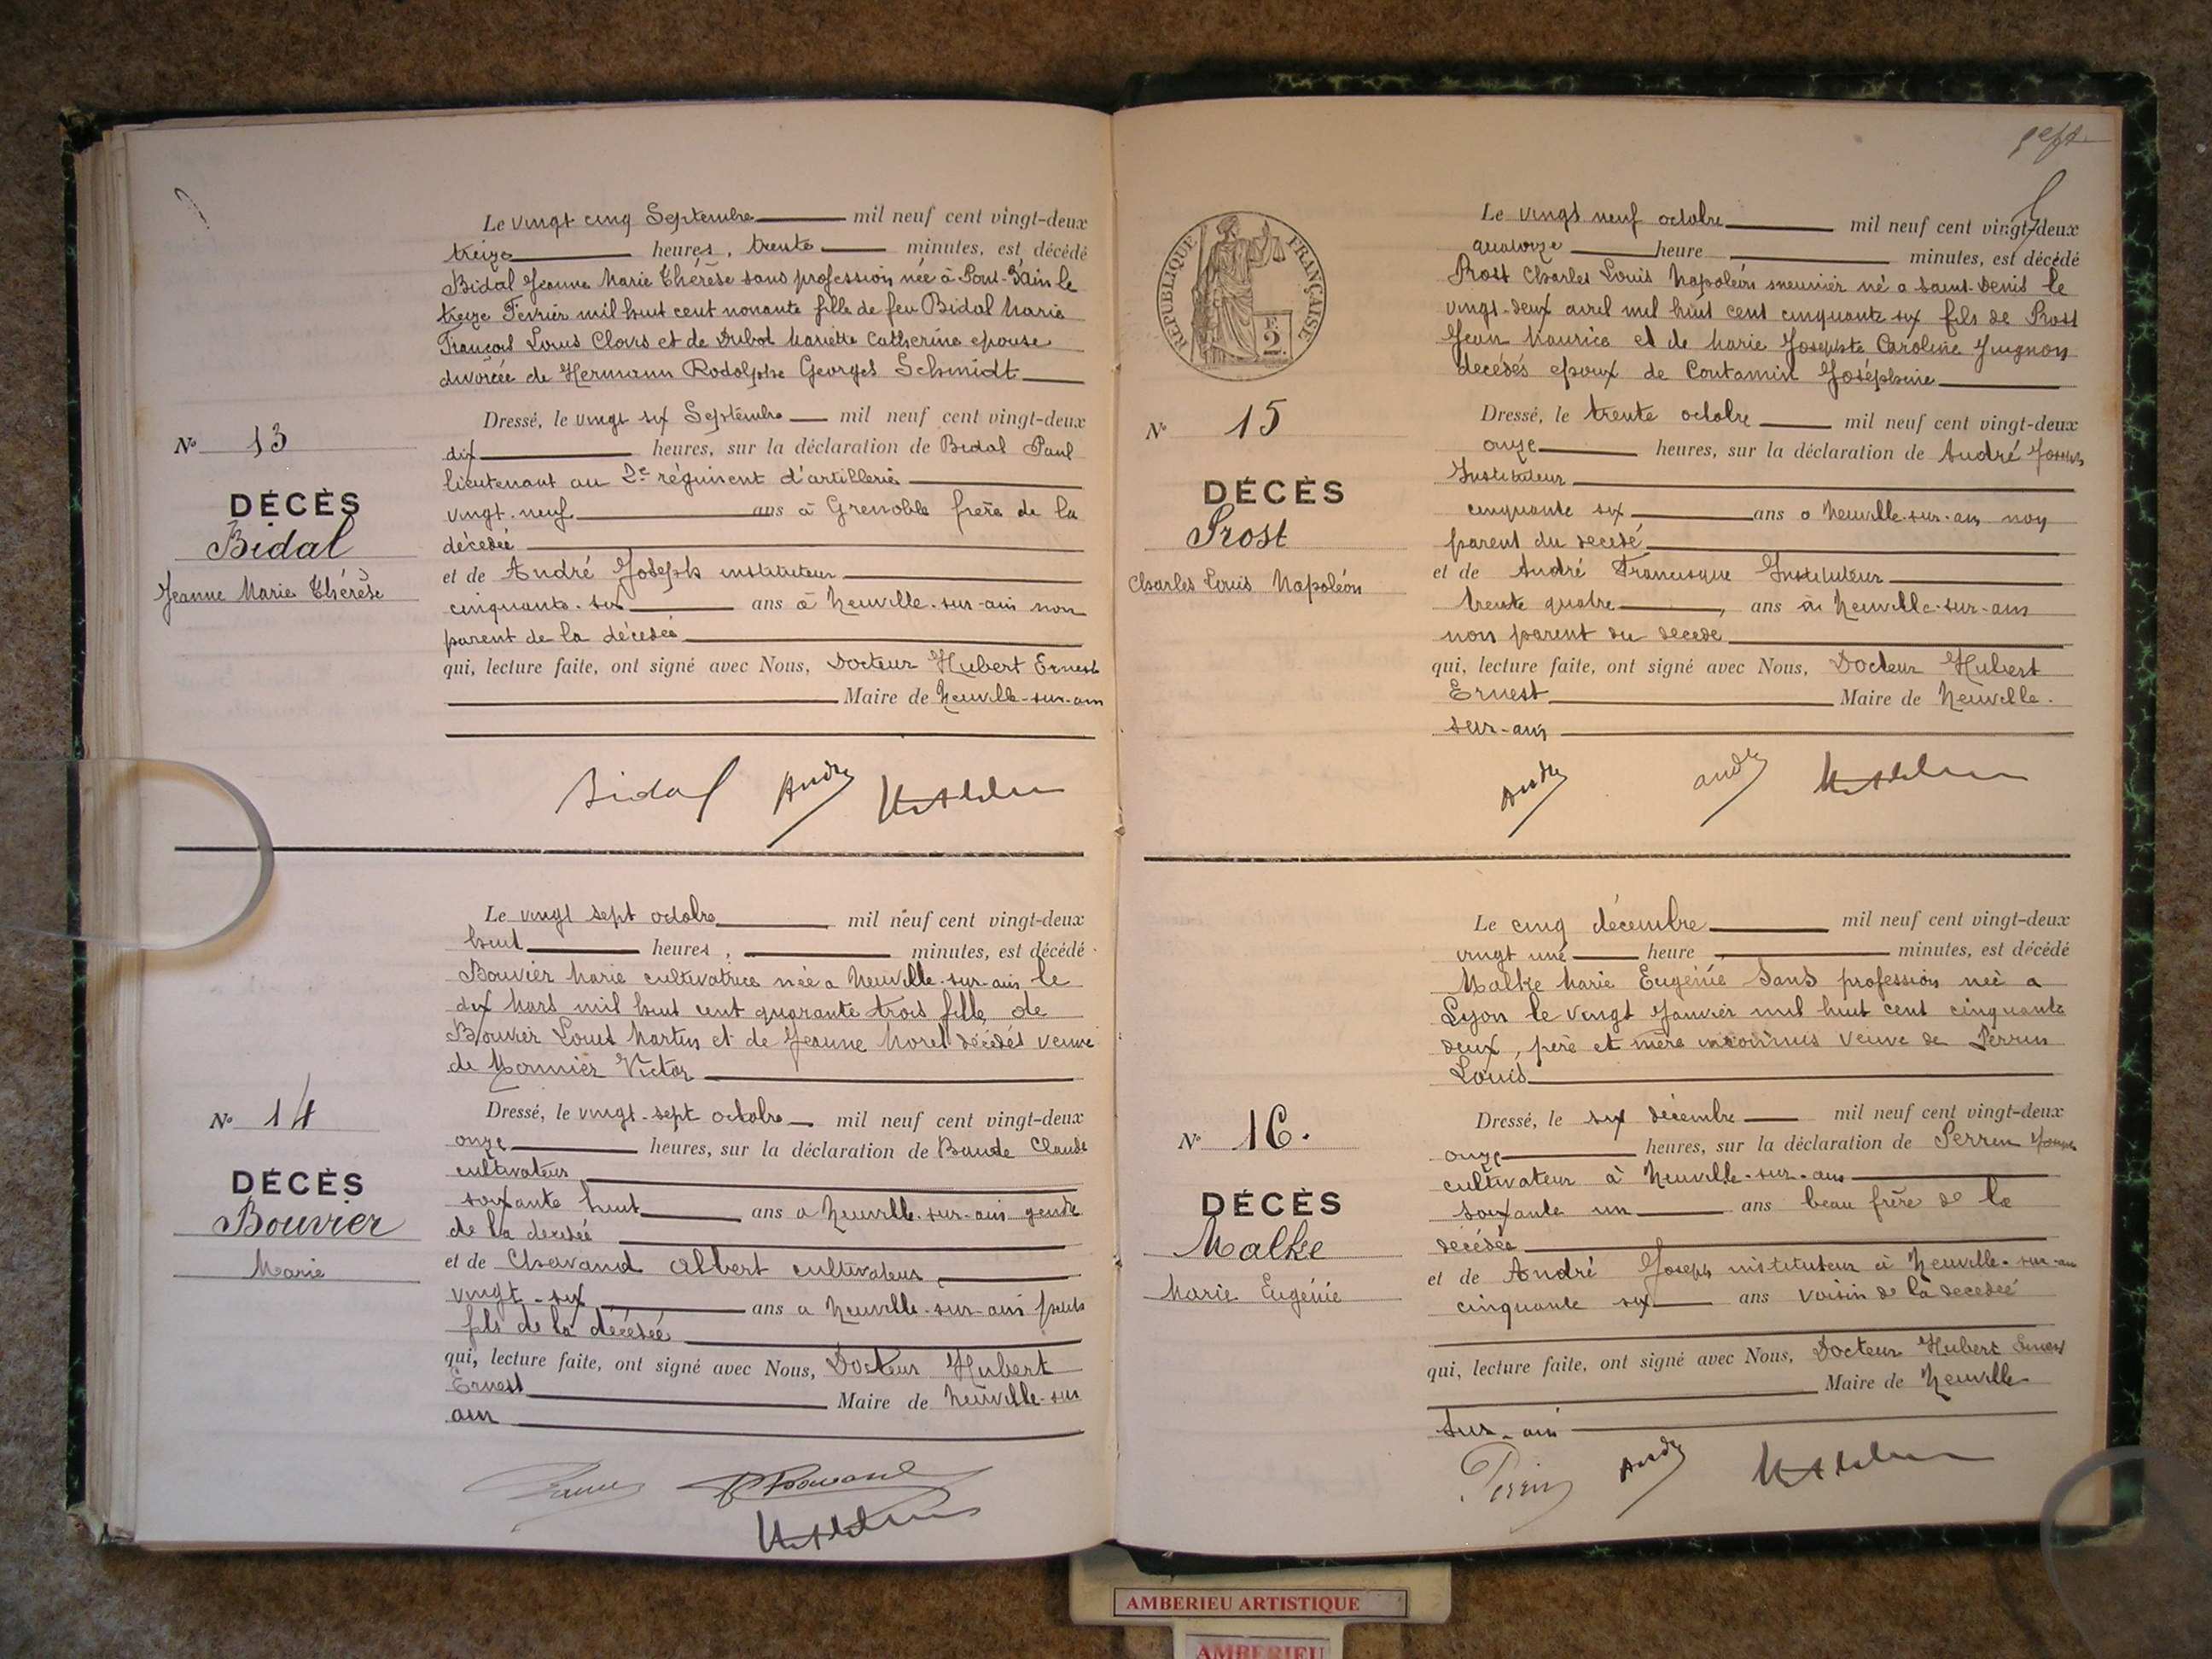 Le vingt cinq Septembre mil neuf cent vingt-deux
treize heures, trente minutes, est décédé
Bidal Jeanne Marie Thérèse sans profession née à Pont-d'Ain le
treize Fevrier mil huit cent nonante fille de feu Bidal Marie
François Louis Clovis et de Dubot Mariette Catherine epouse
divorcée de Hermann Rodolphe Georges Schmidt
Nº 13
DÉCÈS
Bidal
Jeanne Marie Thérèse
Dressé, le vingt six Septembre mil neuf cent vingt-deux
dix heures, sur la déclaration de Bidal Paul
lieutenant au 2e régiment d'artillerie
vingt-neuf ans à Grenoble frère de la
décédée
et de André Joseph instituteur
cinquante-six ans à Neuville-sur-ain non
parent de la décédée
qui, lecture faite, ont signé avec Nous, Docteur Hubert Ernest
Maire de Neuville-sur-ain
Bidal André
Le vingt sept octobre mil neuf cent vingt-deux
huit heures, minutes, est décédé
Bouvier Marie cultivatrice née a Neuville-sur-ain le
dix Mars mil huit cent quarante trois fille de
Bouvier Louis Martin et de Jeanne Morel décédés veuve
de Monnier Victor
Nº 14
DÉCÈS
Bouvier
Marie
Dressé, le vingt-sept octobre mil neuf cent vingt-deux
onze heures, sur la déclaration de Baude Claude
cultivateur
soixante huit ans a Neuville-sur-ain gendre
de la décédée
et de Chavand Albert cultivateur
vingt-six ans a Neuville-sur-ain petit
fils de la décédée
qui, lecture faite, ont signé avec Nous, Docteur Hubert
Ernest Maire de Neuville-sur
ain
RÉPUBLIQUE FRANÇAISE
Le vingt neuf octobre mil neuf cent vingt-deux
quatorze heure minutes, est décédé
Prost Charles Louis Napoléon meunier né a Saint-Denis le
vingt-deux avril mil huit cent cinquante six fils de Prost
Jean Maurice et de Marie Josephte Caroline
decédés epoux de Contamin Joséphine
Nº 15
DÉCÈS
Prost
Charles Louis Napoléon
Dressé, le trente octobre mil neuf cent vingt-deux
onze heures, sur la déclaration de André Joseph
Instituteur
cinquante six ans a Neuville-sur-ain non
parent du décédé
et de André Francisque Instituteur
trente quatre, ans à Neuville-sur-ain
non parent du decede
qui, lecture faite, ont signé avec Nous, Docteur Hubert
Ernest Maire de Neuville-
sur-ain
André André
Le cinq décembre mil neuf cent vingt-deux
vingt une heure minutes, est décédé
Malke Marie Eugénie sans profession née a
Lyon le vingt Janvier mil huit cent cinquante
deux, père et mère inconnus veuve de Perrin
Louis
Nº 16.
DÉCÈS
Malke
Marie Eugénie
Dressé, le six décembre mil neuf cent vingt-deux
onze heures, sur la déclaration de Perrin
cultivateur à Neuville-sur-ain
soixante un ans beau frère de la
décédée
et de André Joseph instituteur à Neuville-sur-ain
cinquante six ans voisin de la decedée
qui, lecture faite, ont signé avec Nous, Docteur Hubert Ernest
Maire de Neuville
sur-ain
Perrin André
AMBERIEU ARTISTIQUE
AMBERIEU